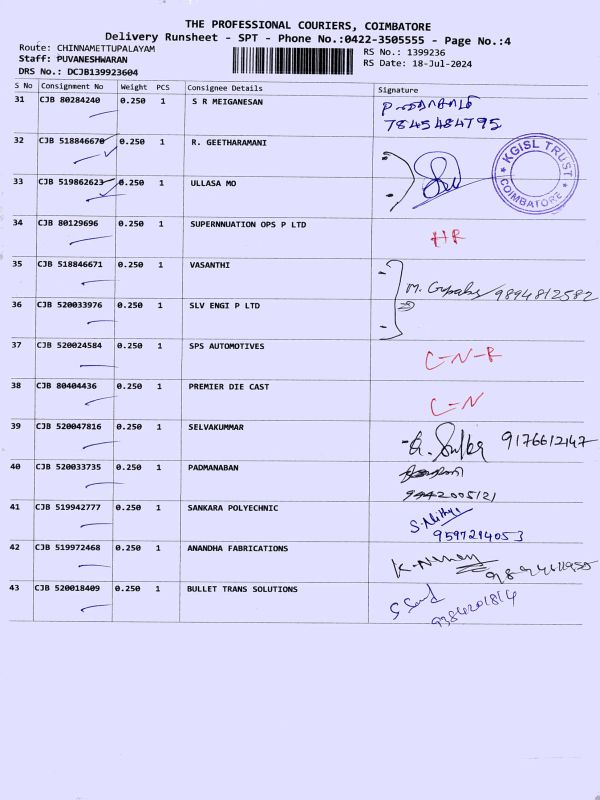 THE PROFESSIONAL COURIERS, COIMBATORE
Delivery Runsheet - SPT - Phone No.:0422-3505555 - Page No.:4
Route: CHINNAMETTUPALAYAM RS No.: 1399236
Staff: PUVANESHWARAN RS Date: 18-Jul-2024
DRS No.: DCJB139923604
S No Consignment No Weight PCS Consignee Details Signature
31 CJB 80284240 0.250 1 S R MEIGANESAN
7845484795
32 CJB 518846670 0.250 1 R. GEETHARAMANI
KGISL TRUST
COIMBATORE
33 CJB 519862623 0.250 1 ULLASA MO
34 CJB 80129696 0.250 1 SUPERNNUATION OPS P LTD
HR
35 CJB 518846671 0.250 1 VASANTHI
9894812582
36 CJB 520033976 0.250 1 SLV ENGI P LTD
37 CJB 520024584 0.250 1 SPS AUTOMOTIVES
C-N-R
38 CJB 80404436 0.250 1 PREMIER DIE CAST
C-N
39 CJB 520047816 0.250 1 SELVAKUMMAR
9176612147
40 CJB 520033735 0.250 1 PADMANABAN
41 CJB 519942777 0.250 1 SANKARA POLYECHNIC
9597214053
42 CJB 519972468 0.250 1 ANANDHA FABRICATIONS
43 CJB 520018409 0.250 1 BULLET TRANS SOLUTIONS
9384201814